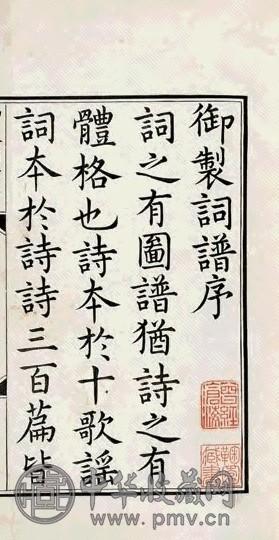 御製詞譜序
詞之有圖譜猶詩之有
體格也詩本於十歌謡
詞本於詩詩三百篇皆
中华收藏网
www.pmv.cn